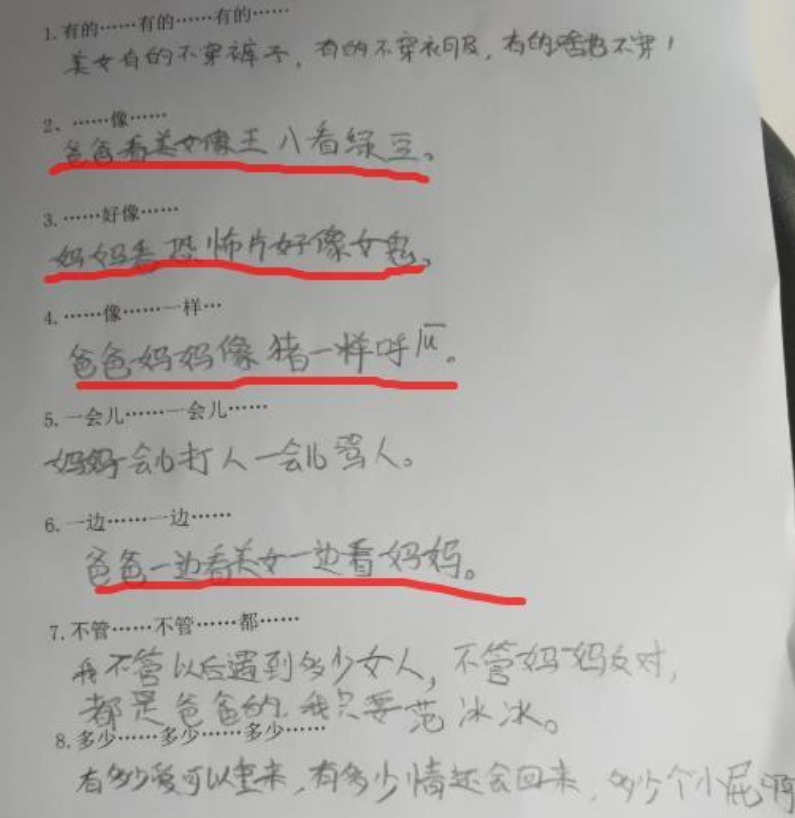 1.有的……有的……有的……
美女有的不穿裤子，有的不穿衣服，有的啥也不穿！
2、……像……
爸爸看美女像王八看绿豆。
3.……好像……
妈妈看恐怖片好像女鬼。
4.……像……一样…
爸爸妈妈像猪一样呼lu。
5.一会儿……一会儿……
妈妈一会儿打人一会儿骂人。
6.一边……一边……
爸爸一边看美女一边看妈妈。
7.不管……不管……都……
我不管以后遇到多少女人，不管妈妈反对，
都是爸爸的.我只要范冰冰。
8.多少……多少……多少……
有多少爱可以重来，有多少情还会回来，多少个小屁